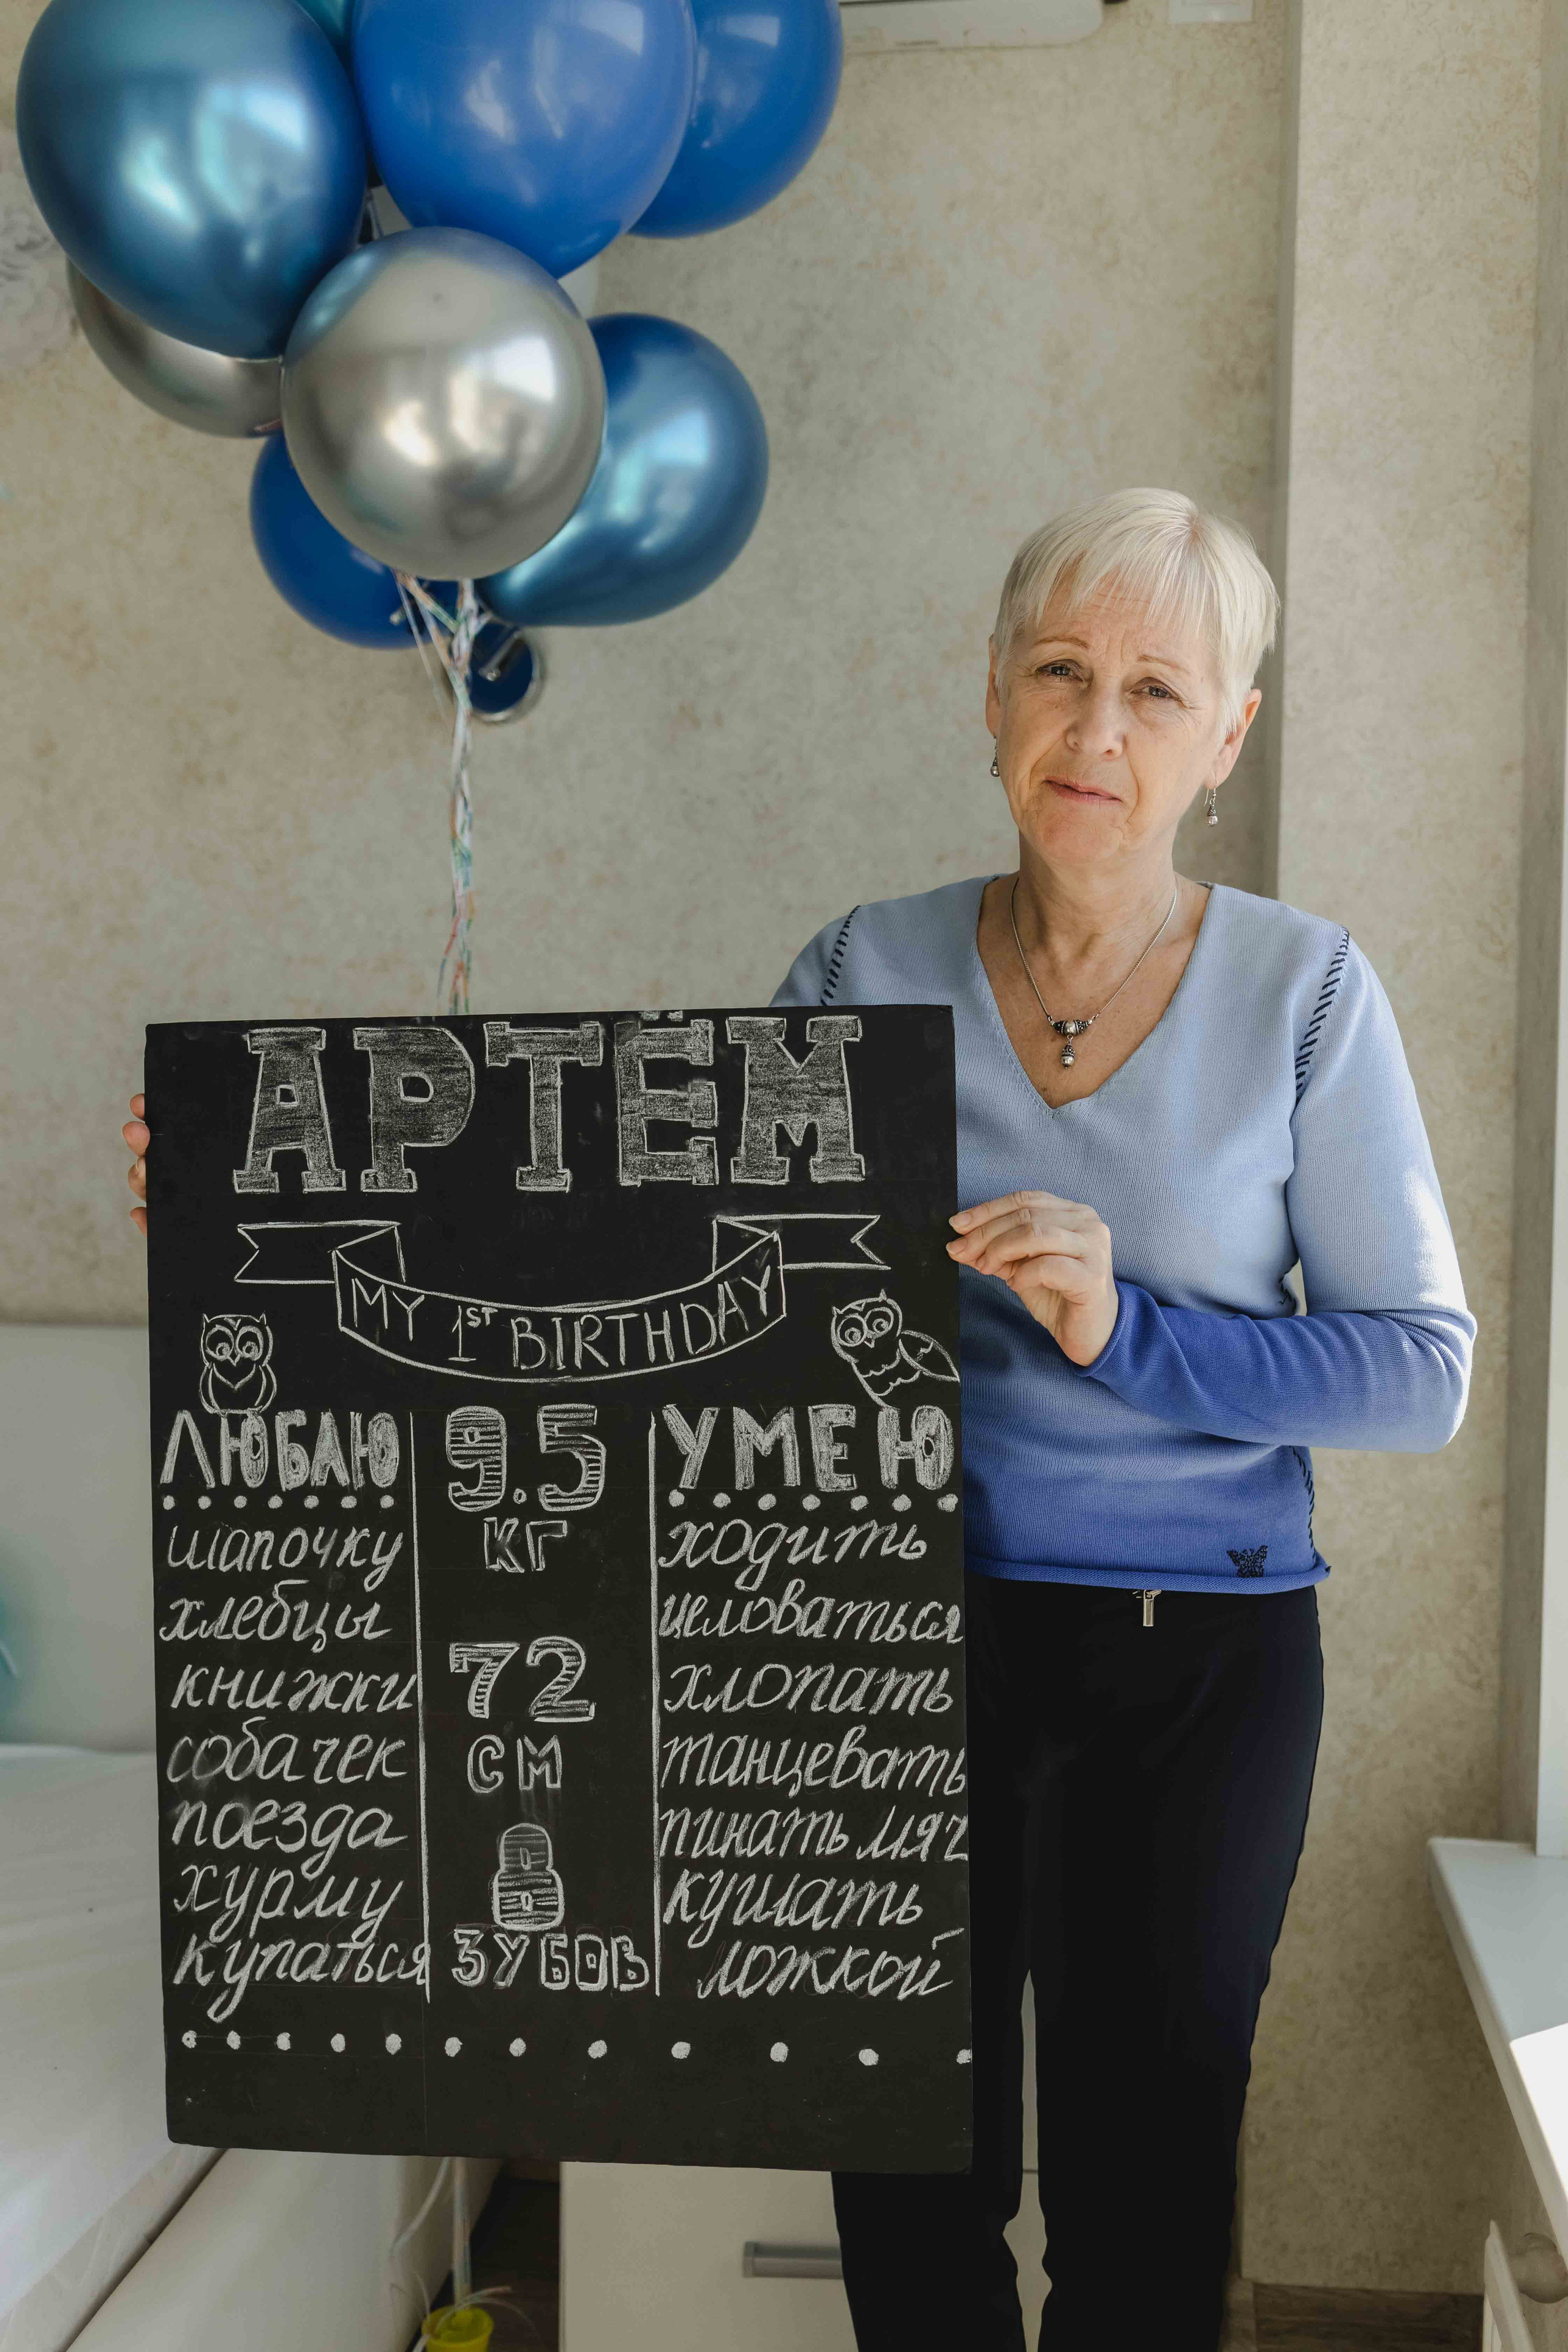 АРТЁМ
MY 1ST BIRTHDAY
ЛЮБЛЮ
шапочку
хлебцы
книжки
собачек
поезда
хурму
купаться
9.5
КГ
72
СМ
8
ЗУБОВ
УМЕЮ
ходить
целоваться
хлопать
танцевать
пинать мяч
кушать
ложкой